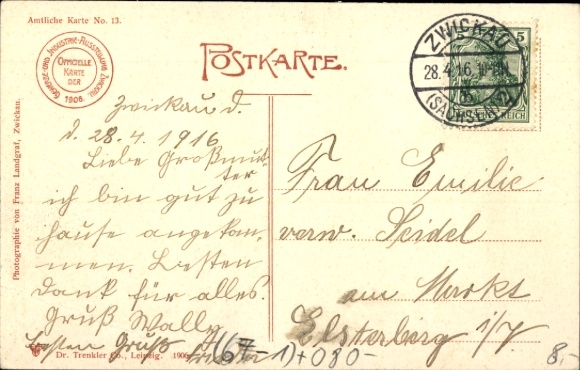 Amtliche Karte No. 13.
GEWERBE- UND INDUSTRIE-AUSSTELLUNG ZWICKAU
OFFICIELLE
KARTE
DER
1906.
POSTKARTE.
Photographie von Franz Landgraf, Zwickau.
ZWICKAU
28.4.16
(SACHSEN)
5
REICH
Zwickau d.
d. 28.4.1916
Liebe Großmut-
ter
ich bin gut zu
hause angekom,
men. Besten
Dank für alles.
Gruß Wally
besten Gruß
Frau Emilie
verw. Seidel
am Markt
Elsterberg i/V.
Dr. Trenkler Co., Leipzig. 1906
8,-